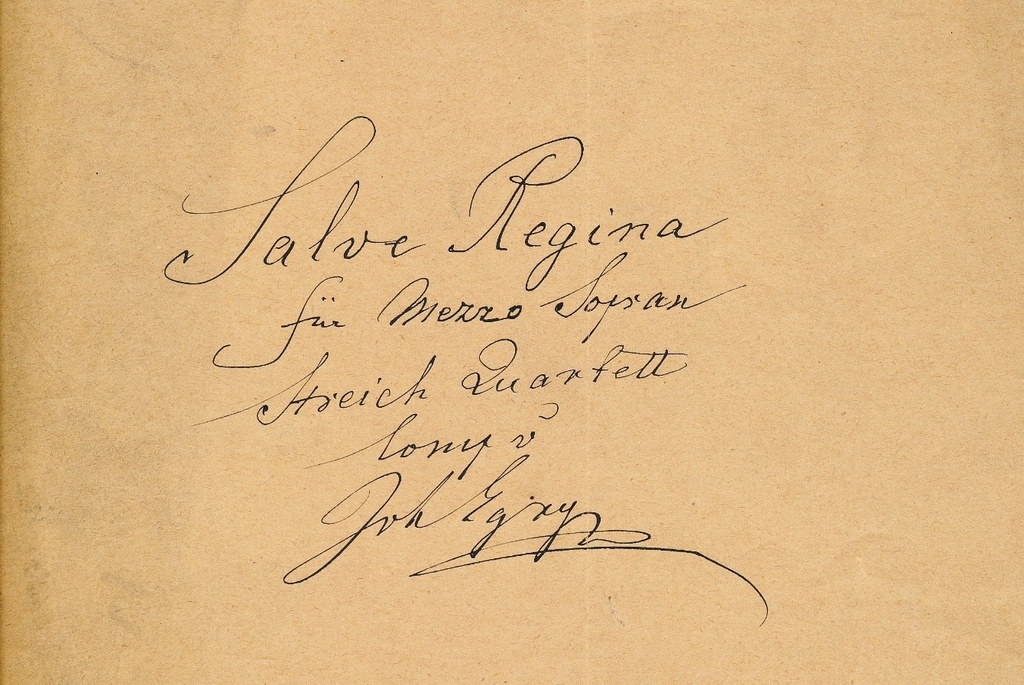 Salve Regina
für Mezzo Sopran
Streich Quartett
Comp v
Joh Egiry